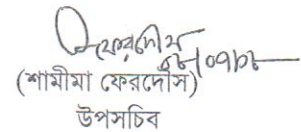 (শামীমা ফেরদৌস)
উপসচিব